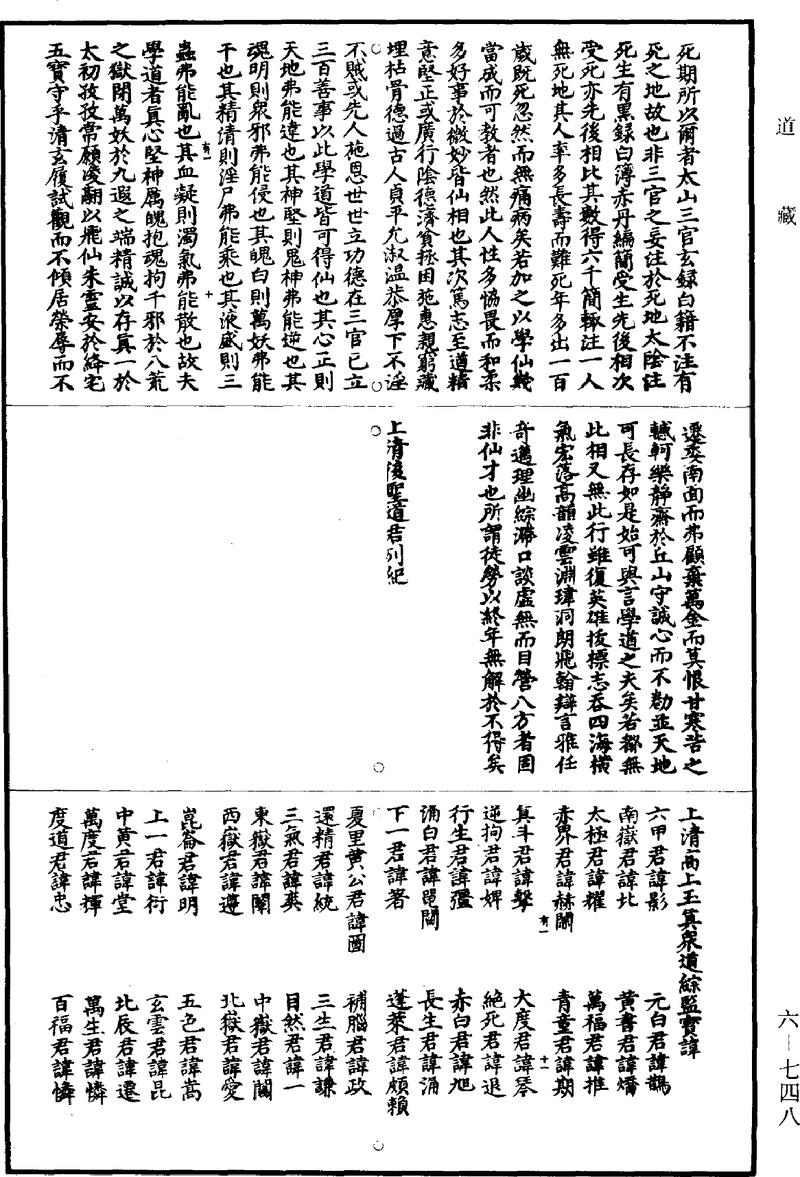 道藏
死期所以爾者太山三官玄録白籍不注有
死之地故也非三官之妄注於死地太陰注
死生有黒録白簿赤丹編簡受生先後相次
受死亦先後相比其數得六千簡輙注一人
無死地其人率多長壽而難死年多出一百
歲既死忽然而無痛病矣若加之以學仙幾
當成而可教者也然此人性多恊畏而和柔
多好事於微妙皆仙相也其次篤志至道精
意堅正或廣行陰德濟貧拯困施惠親窮藏
埋枯骨德過古人貞平允淑溫恭厚下不淫
不賊或先人施恩世世立功德在三官已立
三百善事以此學道皆可得仙也其心正則
天地弗能違也其神堅則鬼神弗能逆也其
魂明則衆邪弗能侵也其魄白則萬妖弗能
干也其精清則淫尸弗能乘也其液盛則三
蟲弗能亂也其血凝則濁氣弗能散也故夫
學道者真心堅神厲魄抱魂拘千邪於八荒
之獄閉萬妖於九遐之端精誠以存真一於
太初孜孜常願凌翮以飛仙朱靈安於絳宅
五寶守乎清玄履試觀而不傾居榮辱而不
有一
十
遷委南面而弗顧棄萬金而莫恨甘寒苦之
轗軻樂靜齋於丘山守誠心而不勌並天地
可長存如是始可與言學道之夫矣若都無
此相又無此行雖復英雄拔標志吞四海橫
氣宏落高韻凌雲淵瑋洞朗飛翰辯言雅任
奇邁理幽綜滯口談虛無而目營八方者固
非仙才也所謂徒勞以終年無解於不得矣
上清後聖道君列紀
上清高上玉真衆道綜監寶諱
六甲君諱影 元白君諱鵲
南嶽君諱北 黄書君諱燔
太極君諱耀 萬福君諱推
赤界君諱赫關 青童君諱期
有一
十一
真斗君諱擊 大度君諱琴
逆拘君諱婢 絕死君諱退
行生君諱彊 赤白君諱旭
涌白君諱 長生君諱涌
下一君諱著 蓬萊君諱頗賴
夏里黄公君諱圖 補腦君諱政
還精君諱統 三生君諱謙
三氣君諱爽 目然君諱一
東嶽君諱闡 中嶽君諱闓
西嶽君諱遵 北嶽君諱愛
崑崙君諱明 五色君諱嵩
上一君諱衍 玄雲君諱昆
中黄君諱堂 北辰君諱遷
萬度君諱揮 萬生君諱憐
度道君諱忠 百福君諱憐
六－七四八